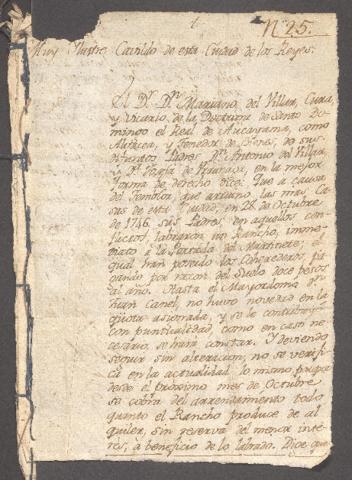 1
Nº 25.
Muy Ilustre Cavildo de esta Ciudad de los Reyes.
El Dr. Dn. Mariano del Villar, Cura,
y Vicario de la Doctrina de Santo Do
mingo el Real de como
Albacea, y Tenedor de Bienes, de sus
difuntos Padres Dn. Antonio del Villar,
y Da. en la mejor
forma de derecho dice: Que a causa
del Temblor, que arruinó las mas Ca
sas de esta Ciudad, en 28 de Octubre
de 1746, sus Padres, en aquellos con
flictos, labraron un Rancho, inme
diato a la Portada del Martinete; el
qual han poseido los Comparecientes, pa
gando por razon del Suelo doce pesos
al año. Hasta el Mayordomo Dn.
Juan Canel, no huvo novedad en la
quota asignada, y se le contribuyó
con puntualidad, como en caso ne
cesario, se hará constar. Y deviendo
seguir sin alteracion, no se verifi
ca en la actualidad lo mismo; porque
desde el proximo mes de Octubre
se cobra del arrendamiento todo
quanto el Rancho produce de al
quiler, sin reserva del menor inte
res, a beneficio de lo labrado. Dice que